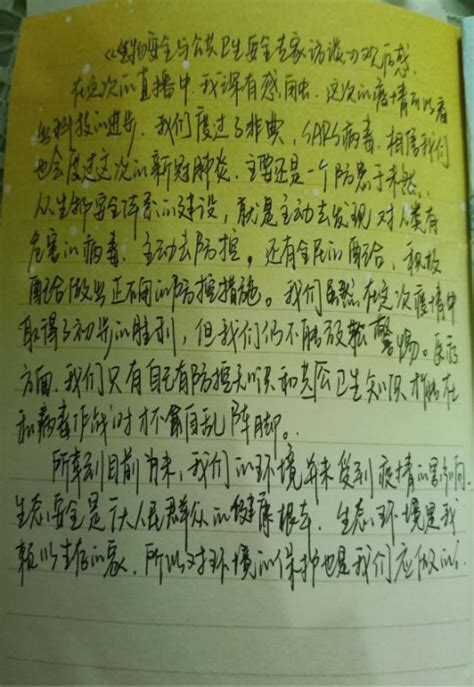 《生物安全与公共卫生安全专家访谈》观后感.
在这次的直播中.我深有感触.这次的疫情的
科技的进步.我们度过了非典,SARS病毒.相信我们
也会度过这次的新冠肺炎.主要还是一个防患于未然.
从生物安全体系的建设,就是主动去发现对人类有
危害的病毒.主动去防控。还有全民的配合,积极
配合做出不同的防控措施。我们虽然在这次疫情中
取得了初步的胜利,但我们仍不能放松警惕。医疗
方面.我们只有自己有防控知识和公共卫生知识才能在
和病毒作战时才不会自乱阵脚。
所幸到目前为来,我们的环境并未受到疫情的影响.
生态安全是广大人民群众的健康根本.生态环境是我
赖以生存的家.所以对环境的保护也是我们应做的.